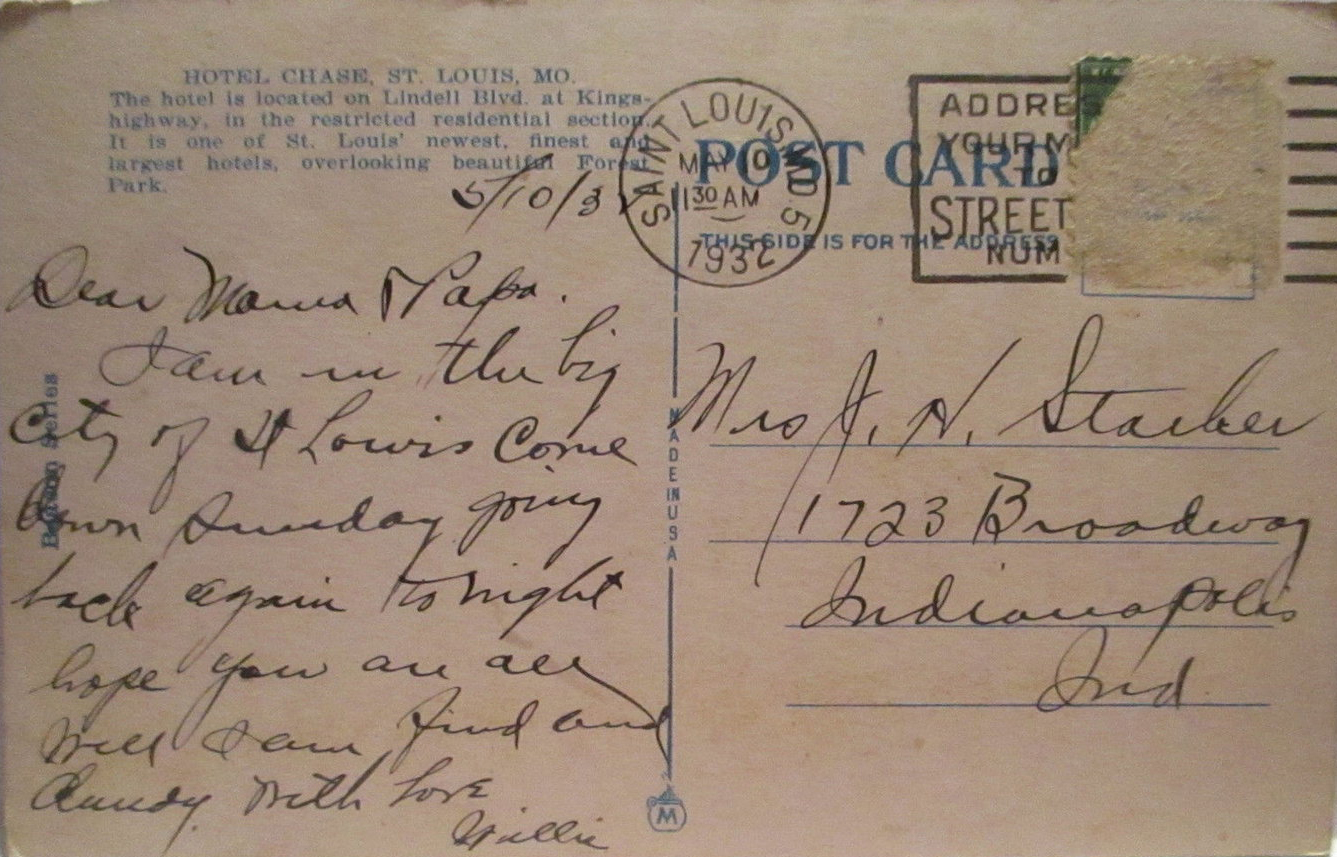 HOTEL CHASE, ST. LOUIS, MO.
The hotel is located on Lindell Blvd. at Kings-
highway, in the restricted residential section.
It is one of St. Louis' newest, finest and
largest hotels, overlooking beautiful Forest
Park.
5/10/32
Dear Mama & Papa.
I am in the big
City of St Louis Come
down Sunday going
back again tonight
hope you are all
Well I am find and
dandy. With Love
Willie
Series
MADE IN USA
M
SAINT LOUIS, MO. 5
MAY 10
1130 AM
1932
POST CARD
THIS SIDE IS FOR THE ADDRESS
ADDRES
YOUR M
TO
STREET
NUM
Mrs J. H. Starker
1723 Broadway
Indianapolis
Ind.